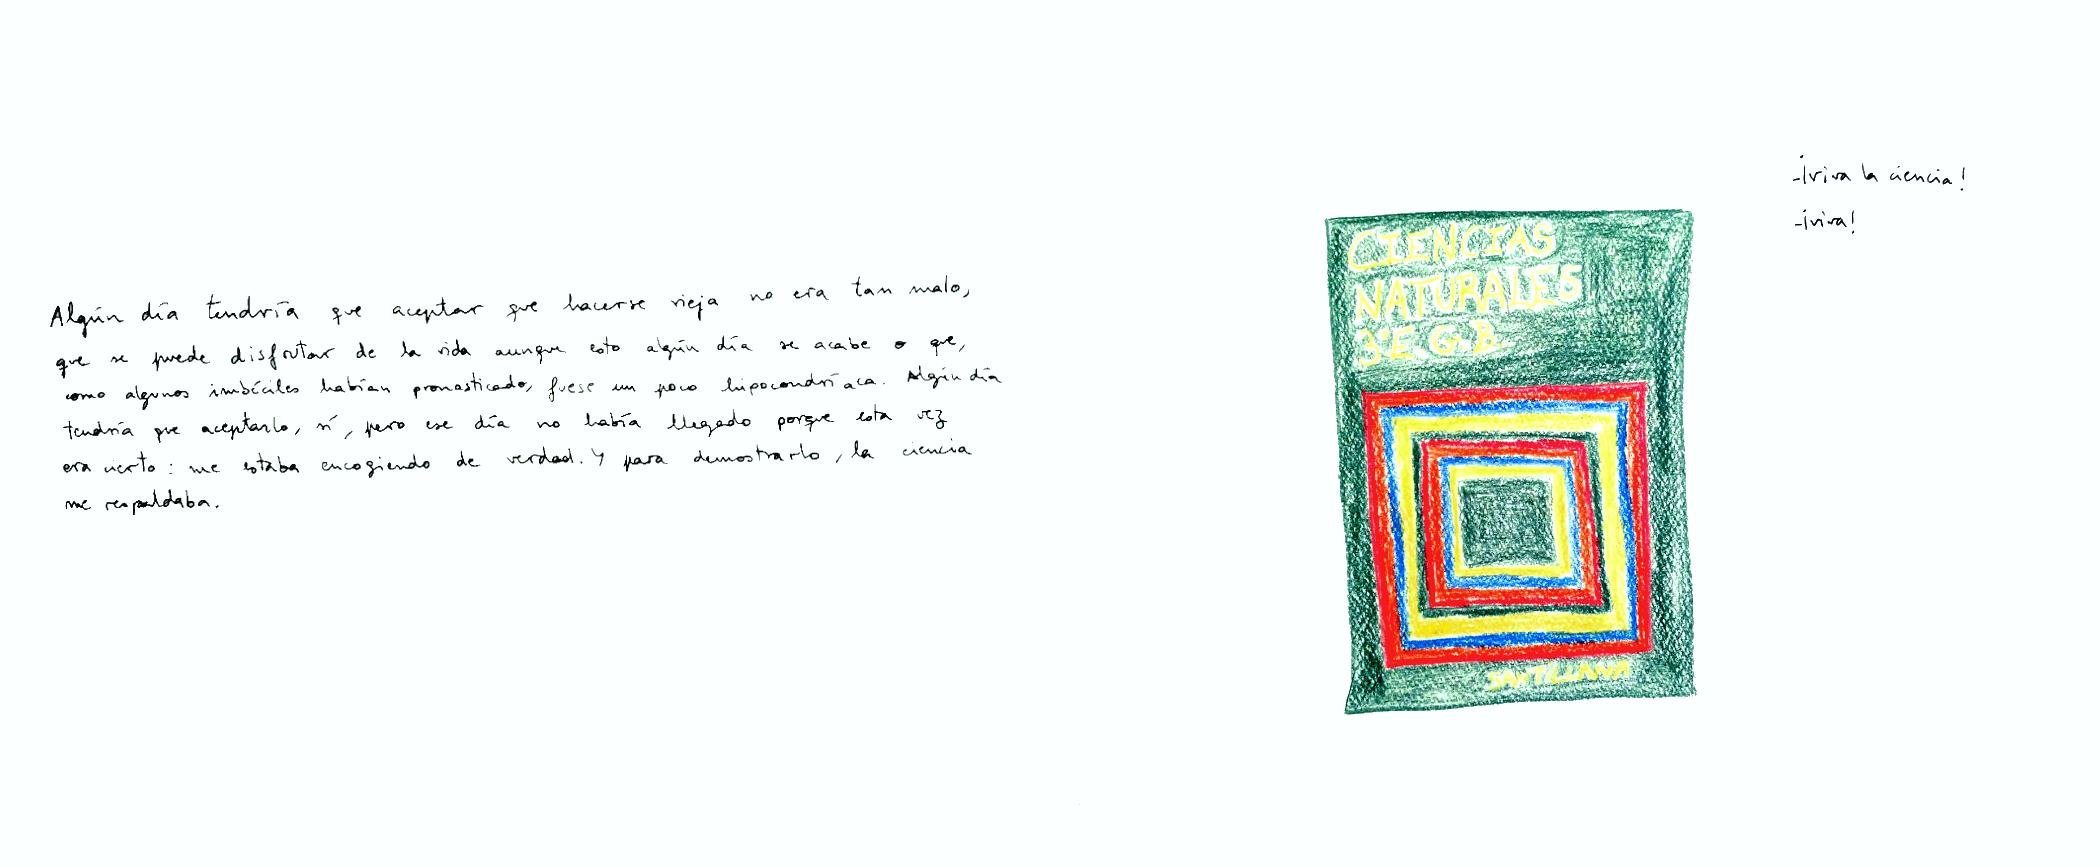 Algún día tendría que aceptar que hacerse vieja no era tan malo,
que se puede disfrutar de la vida aunque esto algún día se acabe o que,
como algunos imbéciles habían pronosticado, fuese un poco hipocondríaca. Algún día
tendría que aceptarlo, sí, pero ese día no había llegado porque esta vez
era cierto: me estaba encogiendo de verdad. Y para demostrarlo, la ciencia
me respaldaba.
CIENCIAS
NATURALES
3º E.G.B.
SANTILLANA
-¡viva la ciencia!
-¡viva!